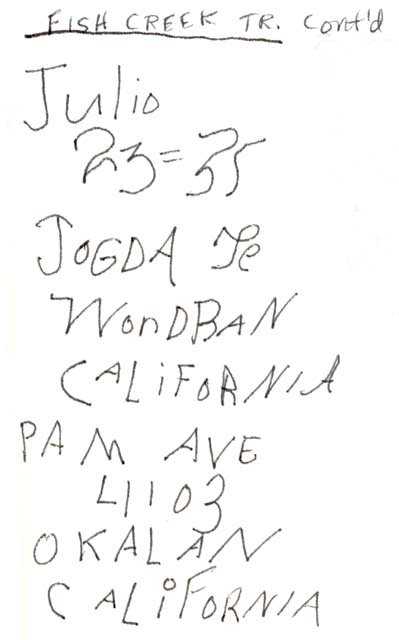 FISH CREEK TR. Cont'd
Julio
23=35
JOGDA Te
WonDBAN
CALiFoRNIA
PAM AVE
41103
OKALAN
CALiFORNIA